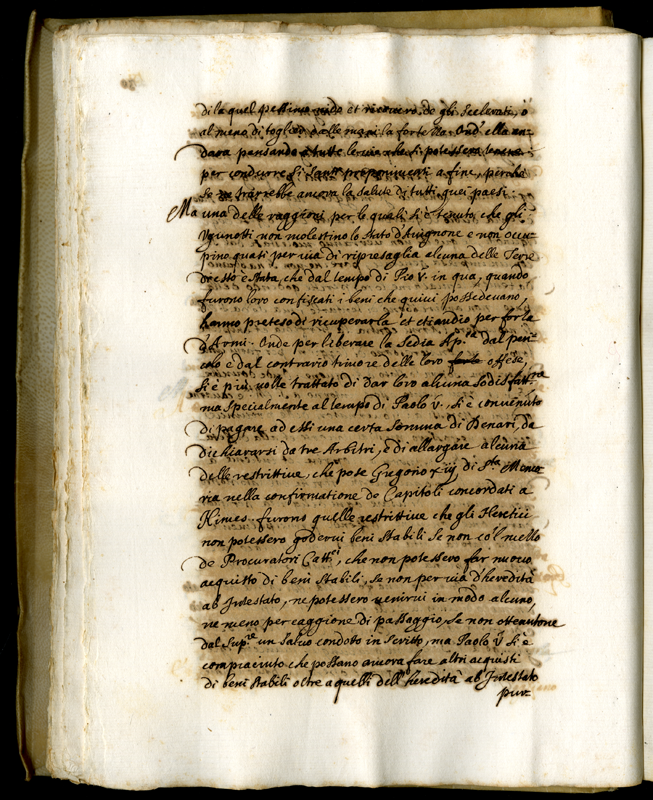 di la quel pessimo nido et ricovero de gli Scelerati, o
al meno di toglier dalle mani la fortezza. Ond' ella an-
dava pensando a tutte le vie che si potesse tenere
per condurre si santi proponimenti a fine, perche
se ne trarrebbe ancora la salute di tutti quei paesi.
Ma una delle raggioni, per le quali si è tenuto, che gli
Vgunotti non molestino lo Stato d'Auignone e non occu-
pino quasi per uia di ripresaglia alcuna delle Terre
di esso è stata, che dal tempo di Pio V. in qua, quando
furono loro confiscati i beni che quiui possedeuano,
hanno preteso di ricuperarla et etiandio per forza
d'Armi. Onde per liberare la Sedia Ap.ca dal peri-
colo e dal contrario timore delle loro offese
si è più uolte trattato di dar loro alcuna sodisfatt.ne
ma specialmente al tempo di Paolo V. si è conuenuto
di pagare ad essi una certa somma di Denari, da
dichiararsi da tre Arbitri, e di allargare alcuna
delle restrittiue, che pose Gregorio xiij di S.ta Memo-
ria nella confirmatione de Capitoli concordati a
Nimes. furono quelle restrittiue che gli Heretici
non potessero goderui beni stabili se non co'l mezzo
de Procuratori Catt.ci, che non potessero far nuouo
acquisto di beni stabili, se non per uia d'heredità
ab Intestato, ne potessero uenirui in modo alcuno,
ne meno per caggione di passaggio, se non ottentone
dal Sup.re un saluo condotto in scritto, ma Paolo V. si è
compiaciuto che possano ancora fare altri acquisti
di beni stabili oltre a quelli dell' heredità ab Intestato
pur